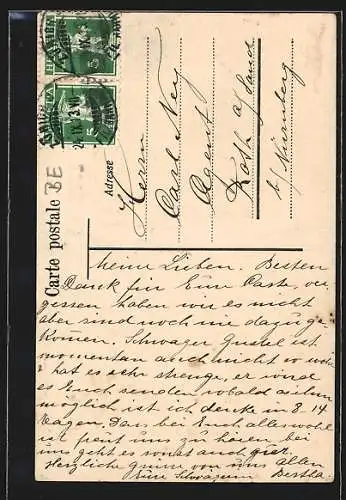 Carte postale
BE
Adresse
Herrn
Carl Ney
Agent
Roth a/Sand
b/Nürnberg
HELVETIA
5
5
Meine Lieben. Besten
Dank für Eure Carte, ver-
gessen haben wir es nicht
aber sind noch nie dazu ge-
komen. Schwager Gustel ist
momentan auch nicht so wohl
hat es sehr strenge, er wird
es Euch senden sobald es ihm
möglich ist ich denke in 8-14
Tagen. Das bei Euch alles wohl
ist freut uns zu hören bei
uns geht es sonst auch gut.
Herzliche grüsse von uns allen
Eure Schwägerin Bertha